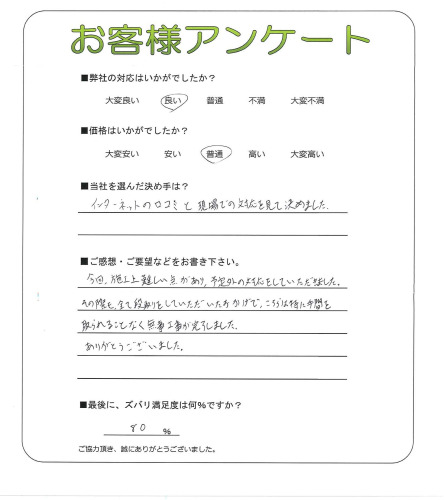 お客様アンケート
■弊社の対応はいかがでしたか?
大変良い 良い 普通 不満 大変不満
■価格はいかがでしたか?
大変安い 安い 普通 高い 大変高い
■当社を選んだ決め手は?
インターネットの口コミと現場での対応を見て決めました.
■ご感想・ご要望などをお書き下さい。
今回、施工上難しい点があり、予定外の対応をしていただきました。
その際も、全て段取りをしていただいたおかげで、こちらは特に手間を
取られることなく無事工事が完了しました。
ありがとうございました。
■最後に、ズバリ満足度は何%ですか?
80 %
ご協力頂き、誠にありがとうございました。